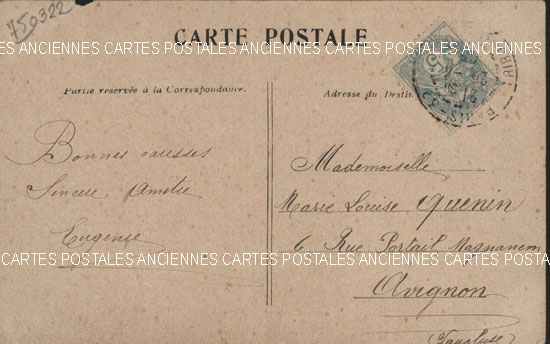 750322
CARTE POSTALE
CARTES POSTALES ANCIENNES CARTES POSTALES ANCIENNES CARTES POSTALES
Partie réservée à la Correspondance.
Adresse du Destin
Bonnes caresses
Sincère Amitié
Eugénie
Mademoiselle
Marie Louise Quenin
6 Rue Portail Magnanen
CARTES POSTALES ANCIENNES CARTES POSTALES ANCIENNES CARTES POSTALES
Avignon
(Vaucluse)